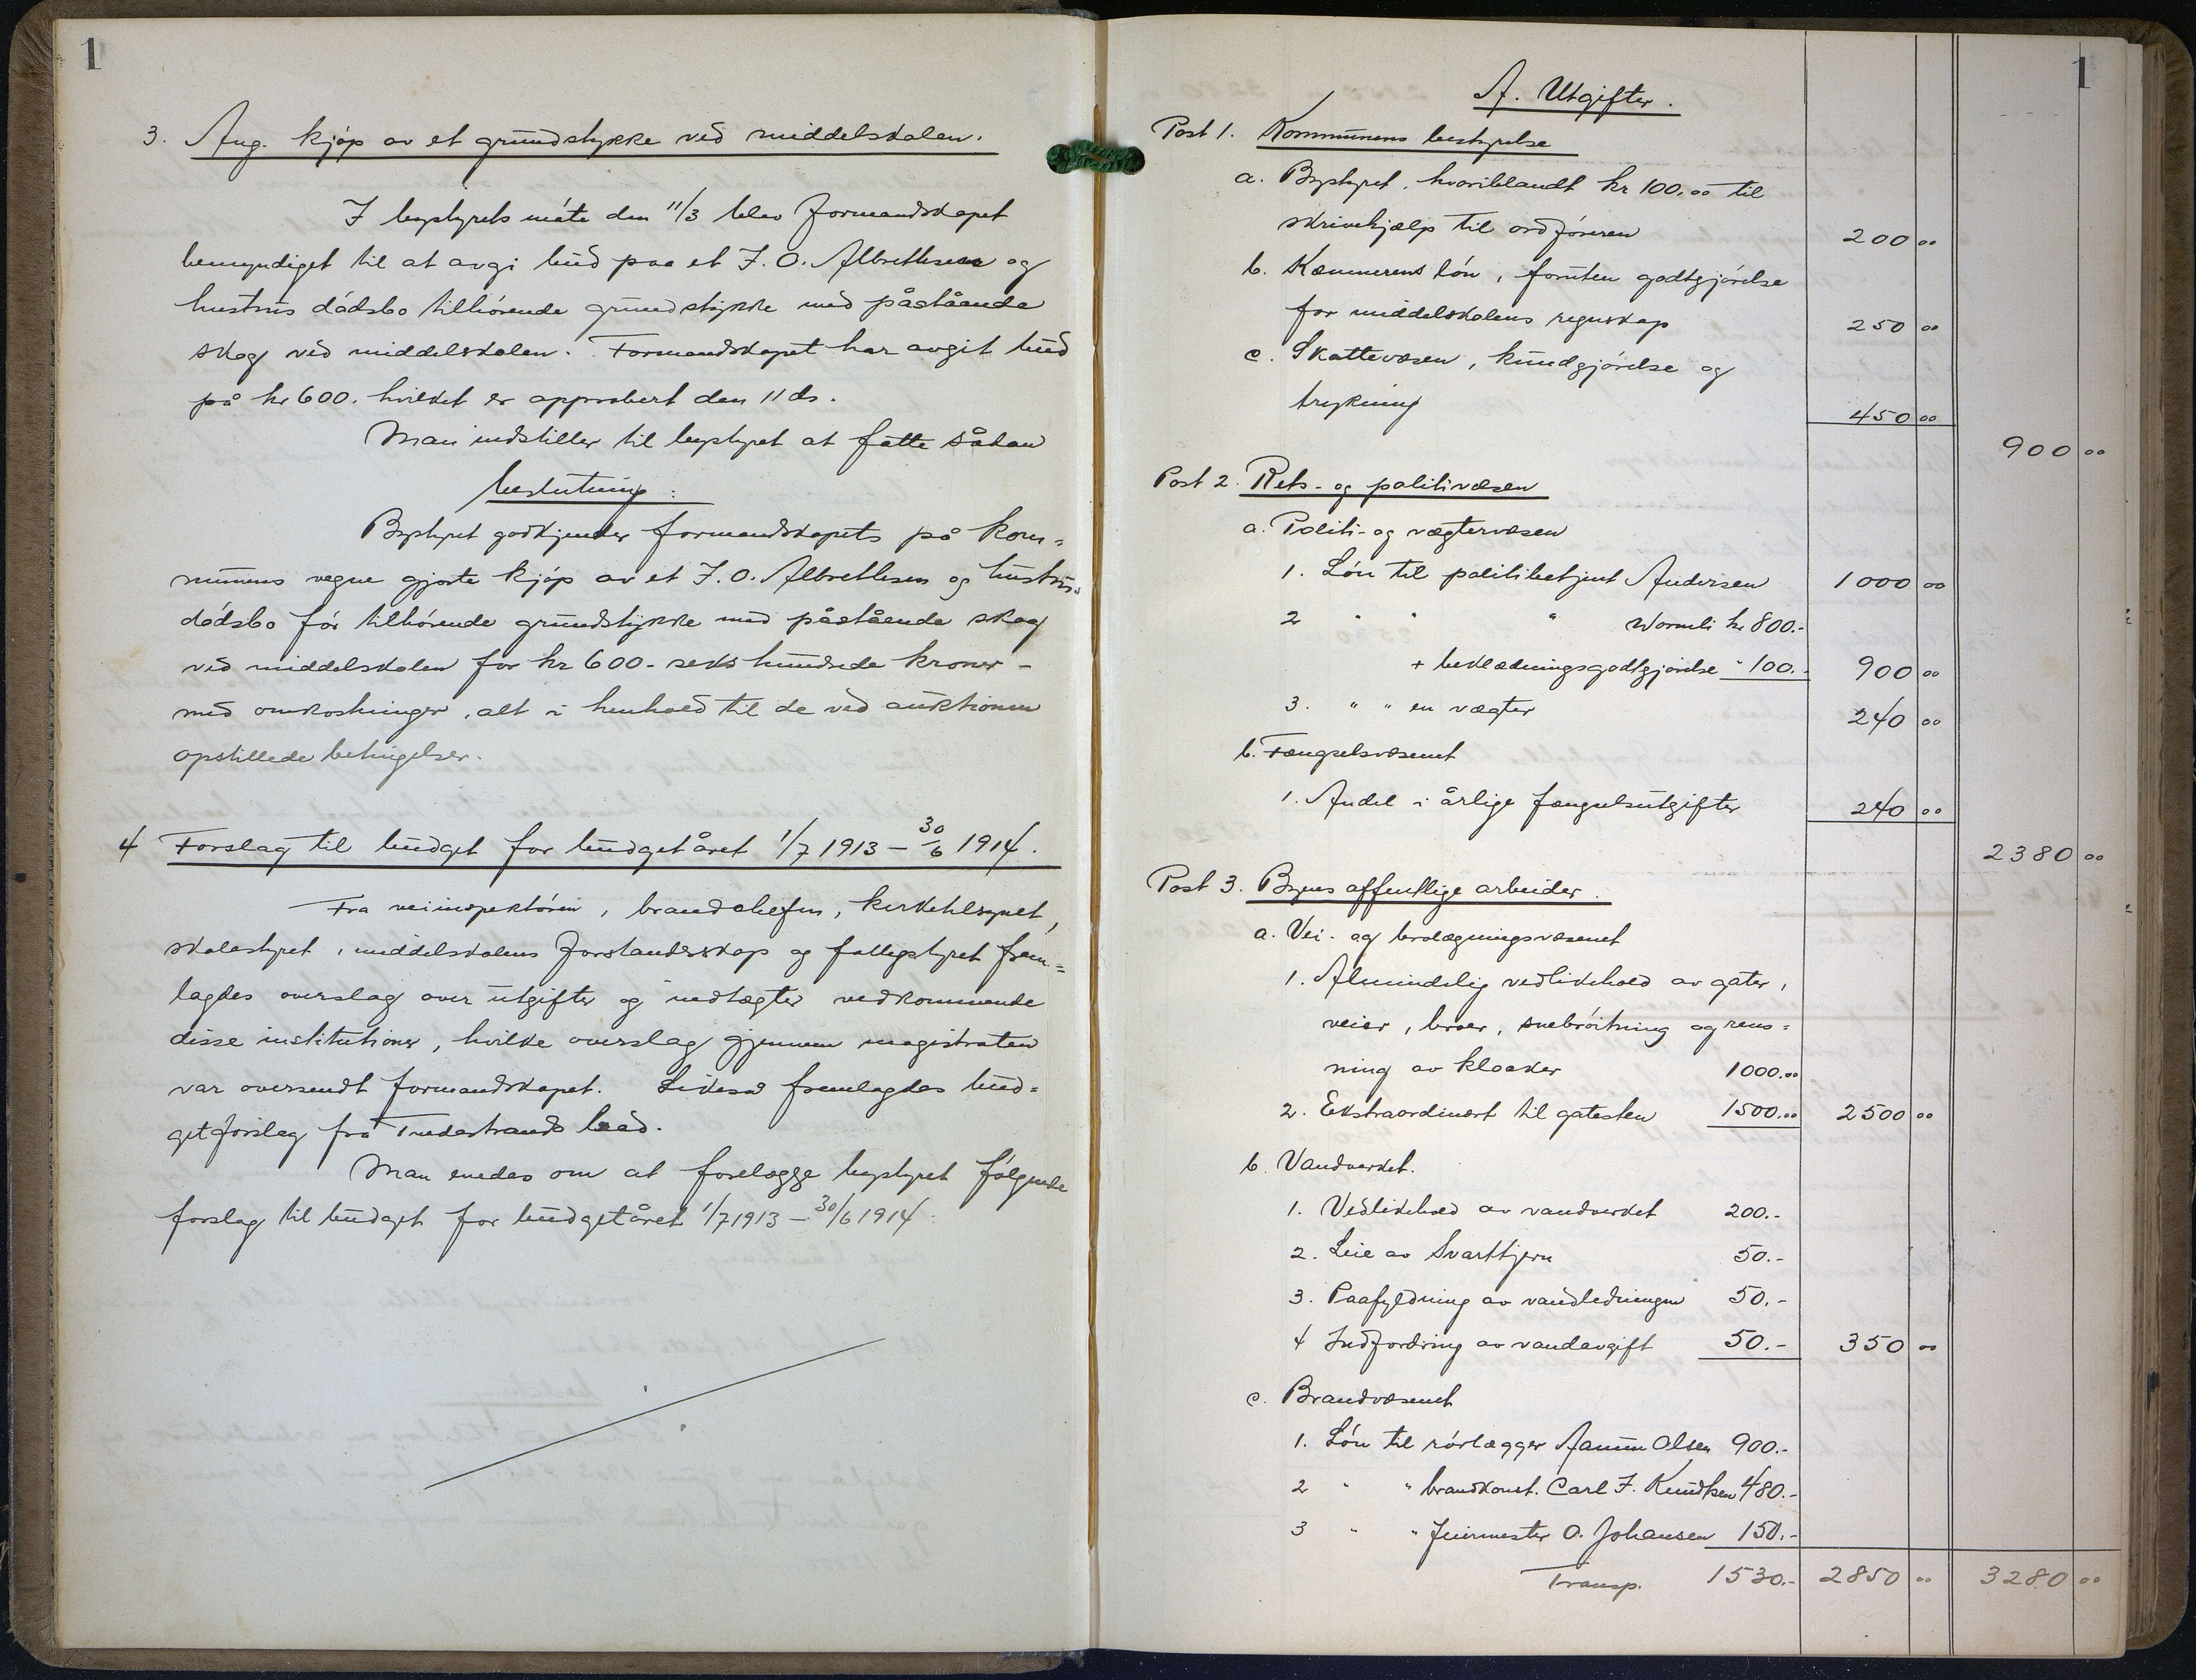 1
3. Ang. kjøp av et grundstykke ved middelskolen.
I bystyrets møte den 11/3 blev formandskapet
bemyndiget til at avgi bud paa et J. O. Albrethsen og
hustrus dødsbo tilhørende grundstykke med påstående
skog ved middelskolen. Formandskapet har avgit bud
på kr 600. hvilket er approbert den 11 ds.
Man indstiller til bystyret at fatte sådan
beslutning:
Bystyret godkjender formandskapets på kom=
munens vegne gjorte kjøp av et J. O. Albrethsen og hustrus
dødsbo før tilhørende grundstykke med påstående skog
ved middelskolen for kr 600 - seks hundrede kroner -
med omkostninger, alt i henhold til de ved auktionen
opstillede betingelser.
4 Forslag til budget for budgetåret 1/7 1913 - 30/6 1914.
Fra veiinspektøren, brandchefen, kirketilsynet,
skolestyret, middelskolens forstanderskap og fattigstyret frem=
lagdes overslag over utgifter og indtægter vedkommende
disse institutioner, hvilke overslag gjennem magistraten
var oversendt formandskapet. Likeså fremlagdes bud=
getforslag fra Tvedestrands bad.
Man enedes om at forelægge bystyret følgende
forslag til budget for budgetåret 1/7 1913 - 30/6 1914:
1
A. Utgifter.
Post 1. Kommunens bestyrelse
a. Bystyret, hvoriblandt kr 100.00 til
skrivehjælp til ordføreren 200 00
b. Kæmnerens løn, foruten godtgjørelse
for middelskolens regnskap 250 00
c. Skattevæsen, kundgjørelse og
trykning 450 00
900 00
Post 2. Rets- og politivæsen
a. Politi- og vægtervæsen
1. Løn til politibetjent Andersen 1000 00
2 " " " Wormli kr 800.-
+ beklædningsgodtgjørelse " 100.- 900 00
3. " " en vægter 240 00
b. Fængselsvæsenet
1. Andel i årlige fængselsutgifter 240 00
2380 00
Post 3. Byens offentlige arbeider.
a. Vei- og brolægningsvæsenet
1. Almindelig vedlikehold av gater,
veier, broer, snebrøitning og rens=
ning av kloaker 1000.00
2. Ekstraordinært til gatesten 1500.00 2500 00
b. Vandverket.
1. Vedlikehold av vandverket 200.-
2. Leie av Svarttjern 50.-
3. Paafyldning av vandledningen 50.-
4 Indfordring av vandavgift 50.- 350 00
c. Brandvæsenet
1. Løn til rørlægger Aanun Olsen 900.-
2 " " brandkonst. Carl F. Knudsen 480.-
3 " " feiermester O. Johansen 150.-
Transp. 1530.- 2850 00 3280 00